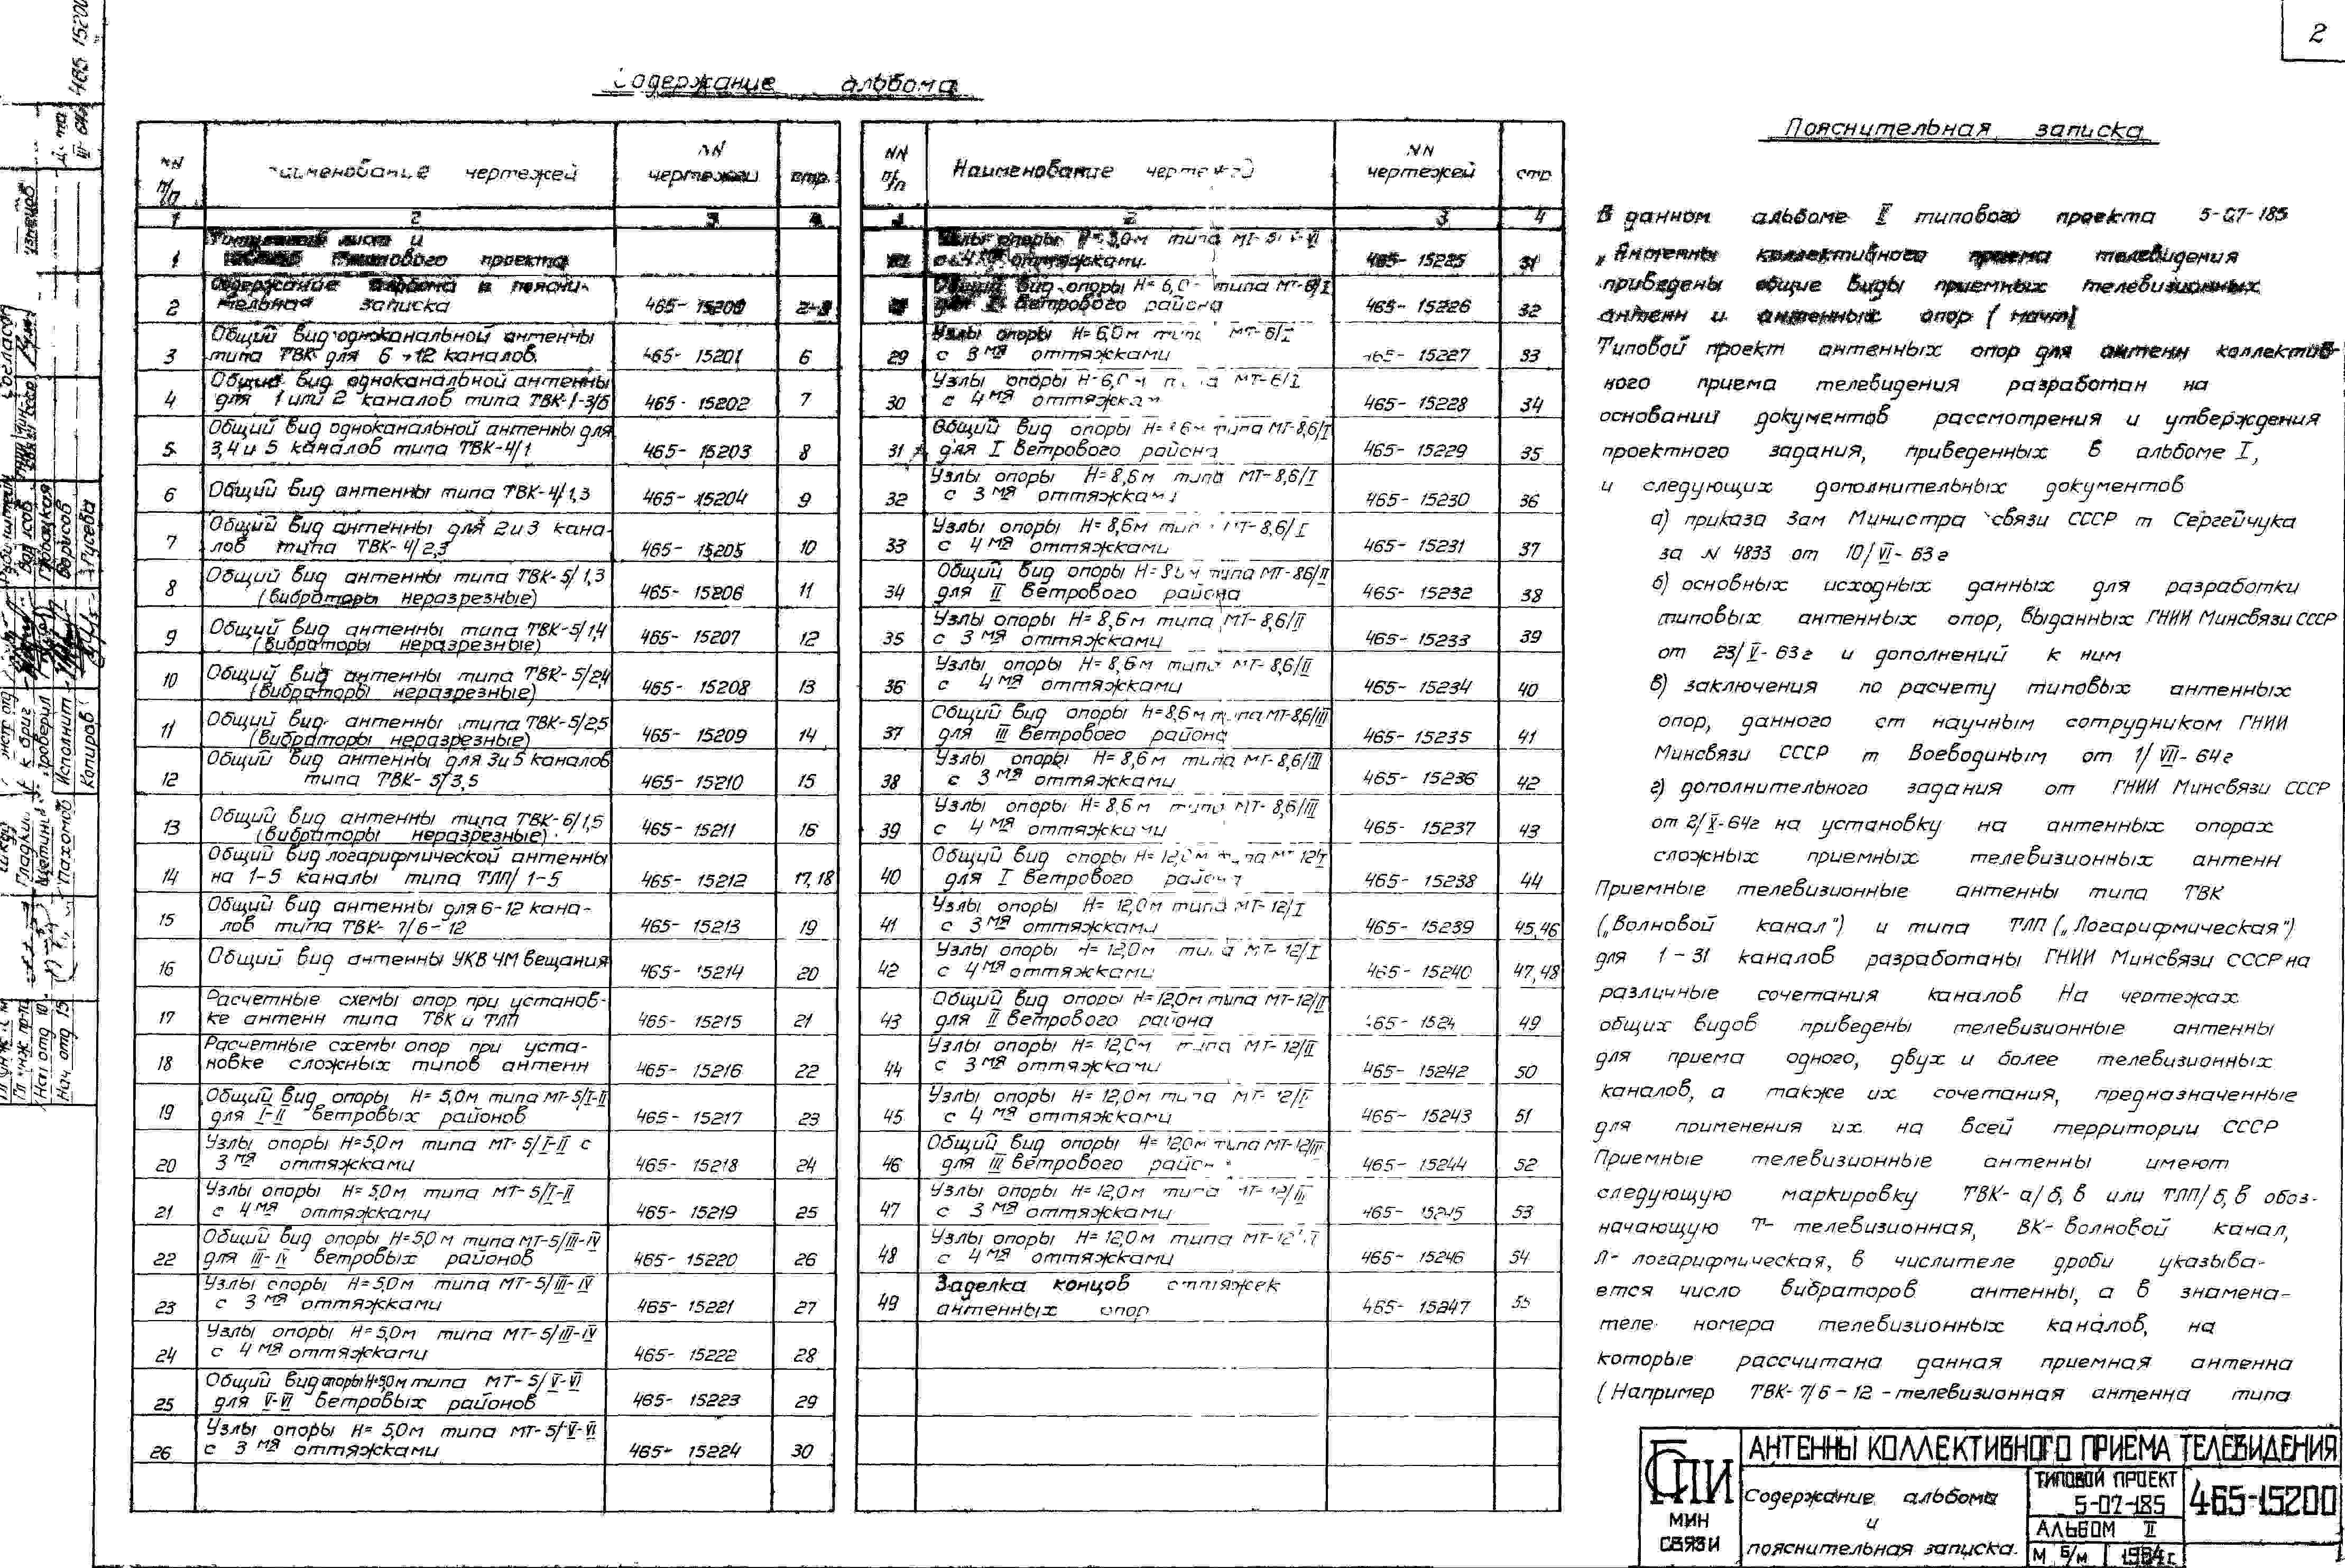 2
Содержание альбома
NN п/п
Наименование чертежей
NN чертежей
стр.
1 2 3 4
1 Титульный лист и типового проекта
2 Содержание альбома и поясни-
тельная записка 465-15200 2-3
3 Общий вид одноканальной антенны
типа ТВК для 6÷12 каналов. 465-15201 6
4 Общий вид одноканальной антенны
для 1 или 2 каналов типа ТВК-1-3/б 465-15202 7
5 Общий вид одноканальной антенны для
3,4 и 5 каналов типа ТВК-4/1 465-15203 8
6 Общий вид антенны типа ТВК-4/1,3 465-15204 9
7 Общий вид антенны для 2 и 3 кана-
лов типа ТВК-4/2,3 465-15205 10
8 Общий вид антенны типа ТВК-5/1,3
(вибраторы неразрезные) 465-15206 11
9 Общий вид антенны типа ТВК-5/1,4
(вибраторы неразрезные) 465-15207 12
10 Общий вид антенны типа ТВК-5/2,4
(вибраторы неразрезные) 465-15208 13
11 Общий вид антенны типа ТВК-5/2,5
(вибраторы неразрезные) 465-15209 14
12 Общий вид антенны для 3 и 5 каналов
типа ТВК-5/3,5 465-15210 15
13 Общий вид антенны типа ТВК-6/1,5
(вибраторы неразрезные) 465-15211 16
14 Общий вид логарифмической антенны
на 1-5 каналы типа ТЛП/1-5 465-15212 17,18
15 Общий вид антенны для 6-12 кана-
лов типа ТВК-7/6-12 465-15213 19
16 Общий вид антенны УКВ ЧМ вещания 465-15214 20
17 Расчетные схемы опор при установ-
ке антенн типа ТВК и ТЛП 465-15215 21
18 Расчетные схемы опор при уста-
новке сложных типов антенн 465-15216 22
19 Общий вид опоры Н=5,0м типа МТ-5/I-II
для I-II ветровых районов 465-15217 23
20 Узлы опоры Н=5,0м типа МТ-5/I-II с
3мя оттяжками 465-15218 24
21 Узлы опоры Н=5,0м типа МТ-5/I-II
с 4мя оттяжками 465-15219 25
22 Общий вид опоры Н=5,0м типа МТ-5/III-IV
для III-IV ветровых районов 465-15220 26
23 Узлы опоры Н=5,0м типа МТ-5/III-IV
с 3мя оттяжками 465-15221 27
24 Узлы опоры Н=5,0м типа МТ-5/III-IV
с 4мя оттяжками 465-15222 28
25 Общий вид опоры Н=5,0м типа МТ-5/V-VI
для V-VI ветровых районов 465-15223 29
26 Узлы опоры Н=5,0м типа МТ-5/V-VI
с 3мя оттяжками 465-15224 30
NN п/п
Наименование чертежей
NN чертежей
стр
1 2 3 4
Узлы опоры Н=5,0м типа МТ-5/V-VI
с 4мя оттяжками 465-15225 31
Общий вид опоры Н=6,0 типа МТ-6/I
для I ветрового района 465-15226 32
29 Узлы опоры Н=6,0м типа МТ-6/I
с 3мя оттяжками 465-15227 33
30 Узлы опоры Н=6,0м типа МТ-6/I
с 4мя оттяжками 465-15228 34
31 Общий вид опоры Н=8,6м типа МТ-8,6/I
для I ветрового района 465-15229 35
32 Узлы опоры Н=8,6м типа МТ-8,6/I
с 3мя оттяжками 465-15230 36
33 Узлы опоры Н=8,6м типа МТ-8,6/I
с 4мя оттяжками 465-15231 37
34 Общий вид опоры Н=8,6м типа МТ-8,6/II
для II ветрового района 465-15232 38
35 Узлы опоры Н=8,6м типа МТ-8,6/II
с 3мя оттяжками 465-15233 39
36 Узлы опоры Н=8,6м типа МТ-8,6/II
с 4мя оттяжками 465-15234 40
37 Общий вид опоры Н=8,6м типа МТ-8,6/III
для III ветрового района 465-15235 41
38 Узлы опоры Н=8,6м типа МТ-8,6/III
с 3мя оттяжками 465-15236 42
39 Узлы опоры Н=8,6м типа МТ-8,6/III
с 4мя оттяжками 465-15237 43
40 Общий вид опоры Н=12,0м типа МТ-12/I
для I ветрового района 465-15238 44
41 Узлы опоры Н=12,0м типа МТ-12/I
с 3мя оттяжками 465-15239 45,46
42 Узлы опоры Н=12,0м типа МТ-12/I
с 4мя оттяжками 465-15240 47,48
43 Общий вид опоры Н=12,0м типа МТ-12/II
для II ветрового района 465-1524 49
44 Узлы опоры Н=12,0м типа МТ-12/II
с 3мя оттяжками 465-15242 50
45 Узлы опоры Н=12,0м типа МТ-12/
с 4мя оттяжками 465-15243 51
46 Общий вид опоры Н=12,0м типа МТ-12/III
для III ветрового района 465-15244 52
47 Узлы опоры Н=12,0м типа МТ-12/III
с 3мя оттяжками 465-15245 53
48 Узлы опоры Н=12,0м типа МТ-12
с 4мя оттяжками 465-15246 54
49 Заделка концов оттяжек
антенных опор 465-15247 55
Пояснительная записка
В данном альбоме II типового проекта 5-07-185
„Антенны коллективного приема телевидения
приведены общие виды приемных телевизионных
антенн и антенных опор (мачт)
Типовой проект антенных опор для антенн коллектив-
ного приема телевидения разработан на
основании документов рассмотрения и утверждения
проектного задания, приведенных в альбоме I,
и следующих дополнительных документов
а) приказа Зам Министра связи СССР т Сергейчука
за N 4833 от 10/VI-63г
б) основных исходных данных для разработки
типовых антенных опор, выданных ГНИИ Минсвязи СССР
от 23/V-63г и дополнений к ним
в) заключения по расчету типовых антенных
опор, данного ст научным сотрудником ГНИИ
Минсвязи СССР т Воеводиным от 1/VII-64г
г) дополнительного задания от ГНИИ Минсвязи СССР
от 2/X-64г на установку на антенных опорах
сложных приемных телевизионных антенн
Приемные телевизионные антенны типа ТВК
(„Волновой канал") и типа ТЛП („Логарифмическая")
для 1-31 каналов разработаны ГНИИ Минсвязи СССР на
различные сочетания каналов На чертежах
общих видов приведены телевизионные антенны
для приема одного, двух и более телевизионных
каналов, а также их сочетания, предназначенные
для применения их на всей территории СССР
Приемные телевизионные антенны имеют
следующую маркировку ТВК-а/б,в или ТЛП/б,в обоз-
начающую Т- телевизионная, ВК-волновой канал,
Л- логарифмическая, в числителе дроби указыва-
ется число вибраторов антенны, а в знамена-
теле номера телевизионных каналов, на
которые рассчитана данная приемная антенна
(Например ТВК-7/6-12-телевизионная антенна типа
ГСПИ
МИН
СВЯЗИ
АНТЕННЫ КОЛЛЕКТИВНОГО ПРИЕМА ТЕЛЕВИДЕНИЯ
Содержание альбома
и
пояснительная записка.
ТИПОВОЙ ПРОЕКТ
5-07-185
АЛЬБОМ II
М б/м 1964г.
465-15200
465 15200
Нач отд 15
Проверил
Исполнит
Копиров
Пахомов
Борисов
Гусева